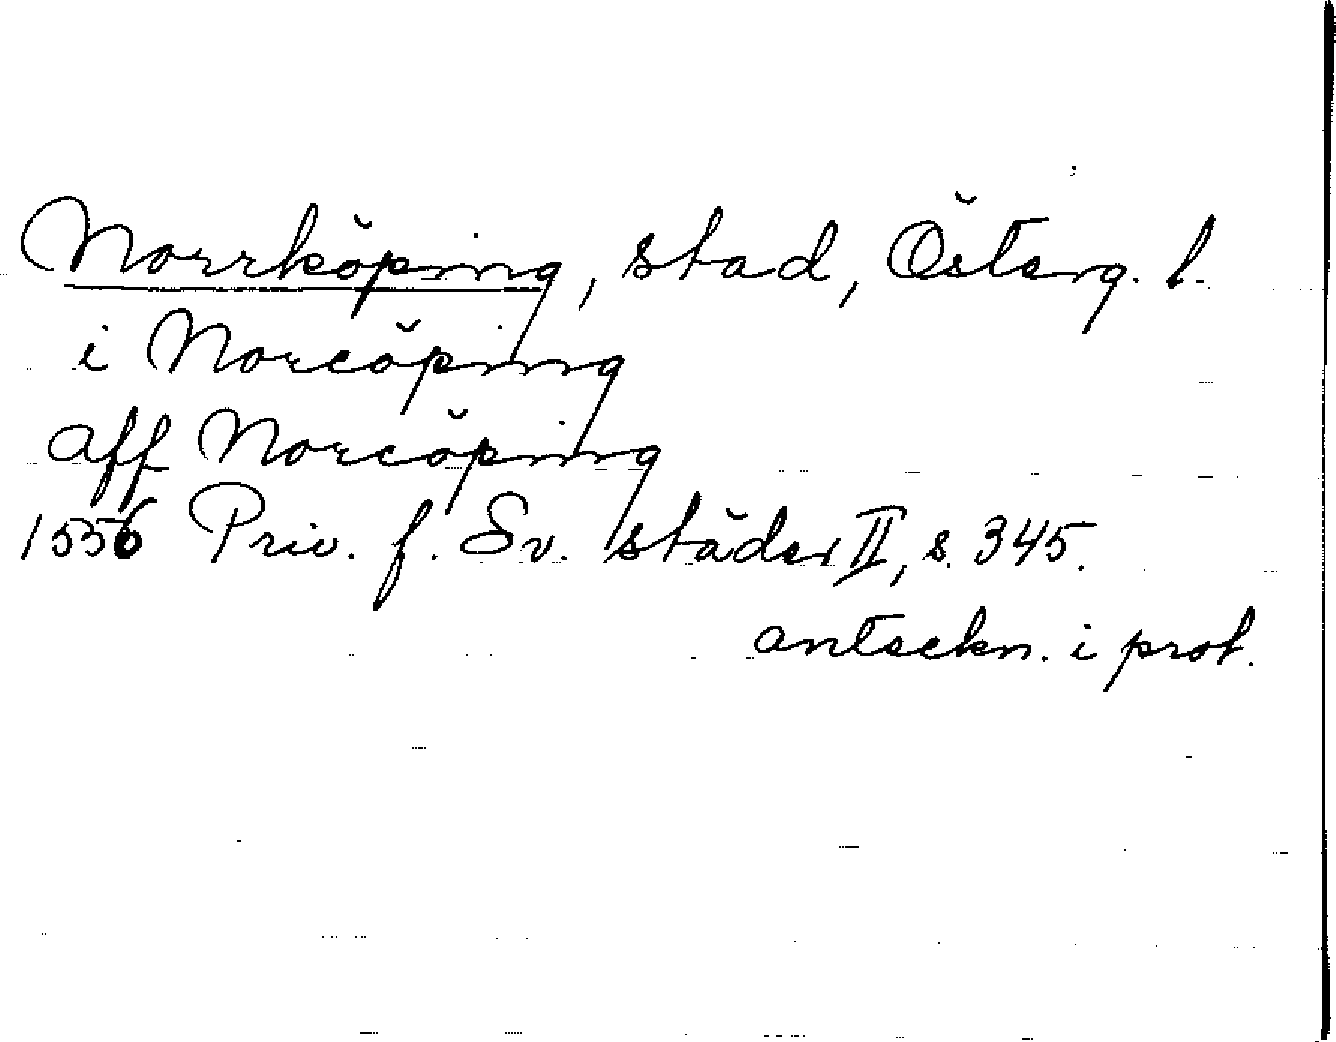 Norrköping, stad, Österg. l.
i Norcöping
aff Norcöping
1556 Priv. f. Sv. städer II, s. 345.
anteckn. i prot.